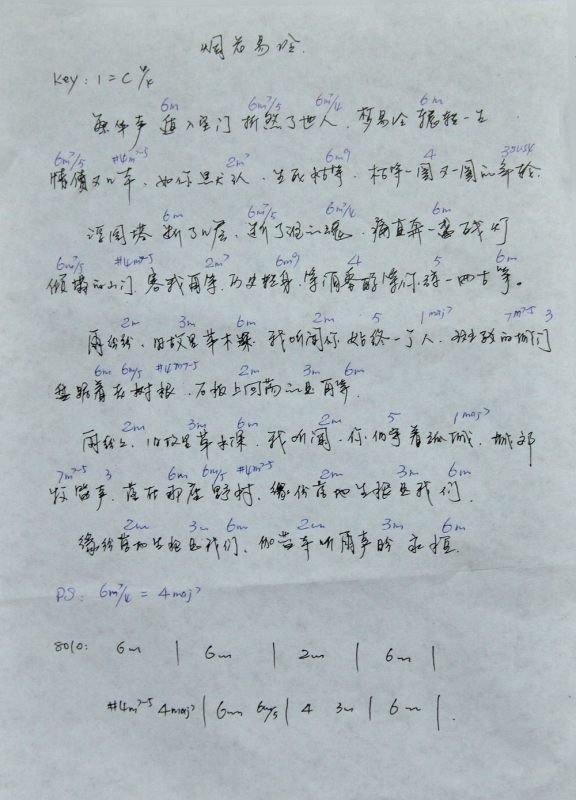 烟花易冷
Key: 1=C 4/4
6m 6m7/5 6m7/4 6m
繁华声 遁入空门 折煞了世人, 梦易冷 辗转一生
6m7/5 #4m7-5 2m7 6m9 4 3sus4
情债又几本, 如你默认, 生死枯等, 枯等一圈又一圈的年轮
6m 6m7/5 6m7/4 6m
浮图塔 断了几层, 断了谁的魂, 痛直奔一盏残灯
6m7/5 #4m7-5 2m7 6m9 4 5 6m
倾塌的山门 容我再等, 历史转身, 等酒香醇 等你弹一曲古筝。
2m 3m 6m 2m 5 1maj7 7m7-5 3
雨纷纷, 旧故里草木深, 我听闻你始终一个人, 斑驳的城门
6m 6m/5 #4m7-5 2m 3m 6m
盘踞着老树根, 石板上回荡的是再等
2m 3m 6m 2m 5 1maj7
雨纷纷, 旧故里草木深, 我听闻, 你仍守着孤城, 城郊
7m7-5 3 6m 6m/5 #4m7-5 2m 3m 6m
牧笛声, 落在那座野村, 缘份落地生根是我们
2m 3m 6m 2m 3m 6m
缘份落地生根是我们, 伽蓝寺听雨声盼 永恒
PS: 6m7/4 = 4maj7
Solo: 6m | 6m | 2m | 6m |
#4m7-5 4maj7 | 6m 6m/5 | 4 3m | 6m |.